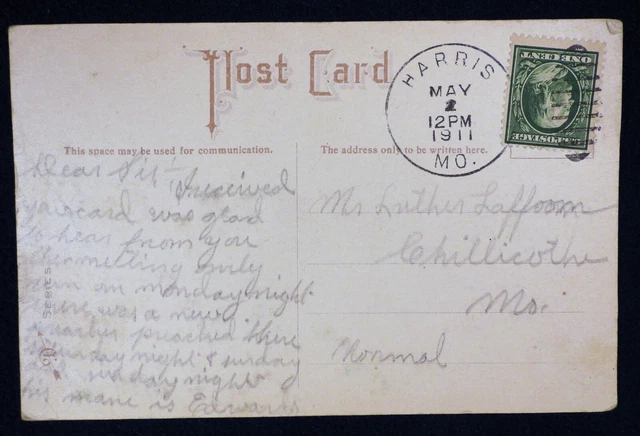 Post Card
HARRIS
MAY
2
12PM
1911
MO.
ONE CENT
U.S. POSTAGE
This space may be used for communication.
The address only to be written here.
Dear Sir:— I received
your card was glad
to hear from you
the melting only
ran on monday night
there was a new
preached there
saturday night & sunday
& sunday night
his name is Edwards
Mr Luther Laffoom
Chillicothe
Mo.
Normal
SERIES